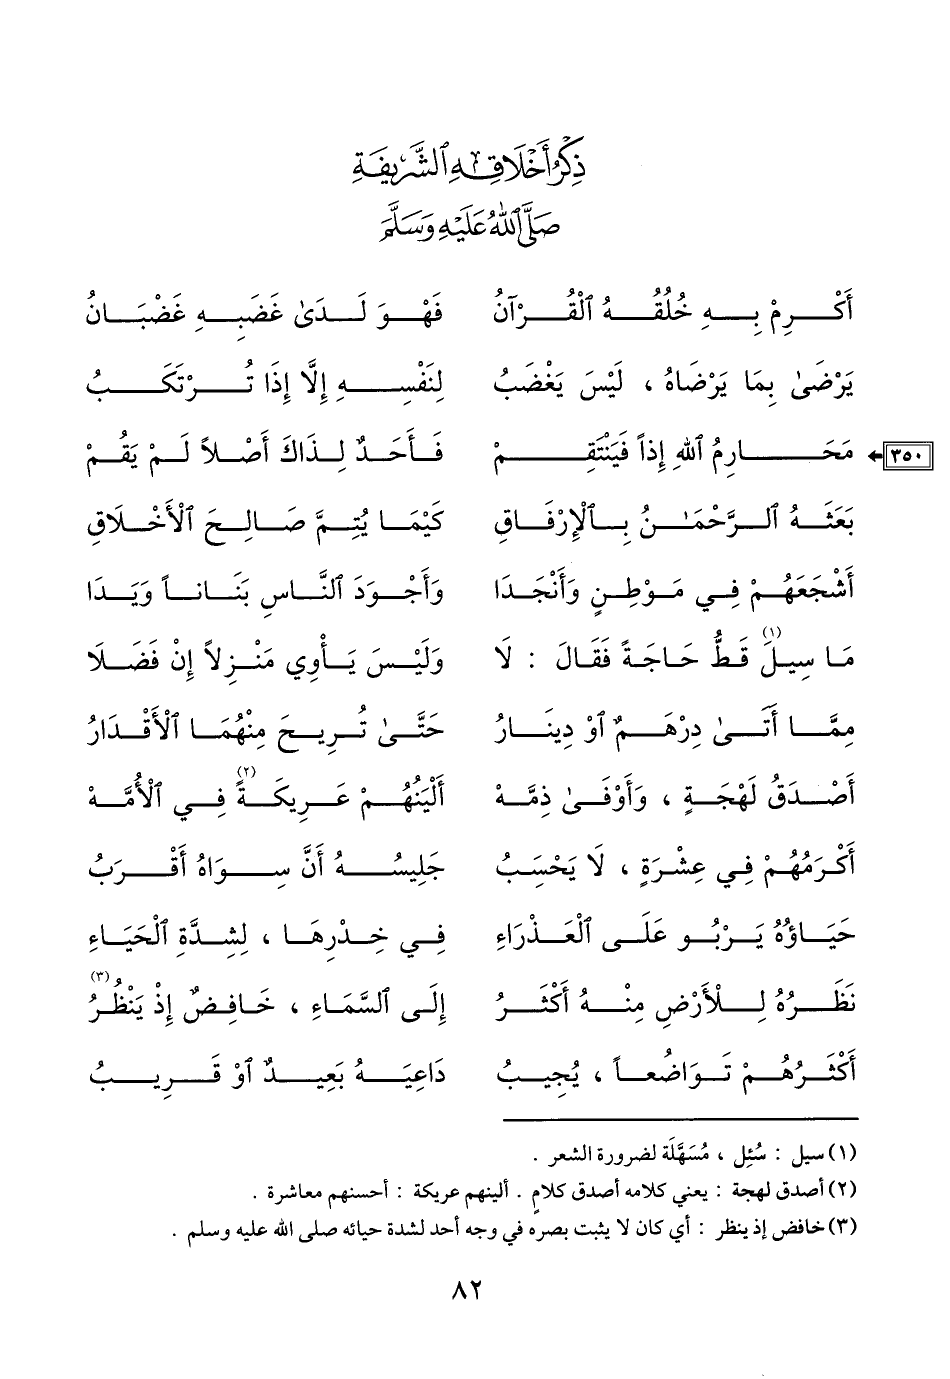 ذِكْرُ أَخْلَاقِهِ ٱلشَّرِيفَةِ
صَلَّى ٱللهُ عَلَيْهِ وَسَلَّمَ
أَكْرِمْ بِهِ خُلُقُهُ ٱلْقُرْآنُ فَهْوَ لَدَىٰ غَضَبِهِ غَضْبَانُ
يَرْضَىٰ بِمَا يَرْضَاهُ ، لَيْسَ يَغْضَبُ لِنَفْسِهِ إِلَّا إِذَا تُرْتَكَبُ
٣٥٠ مَحَارِمُ ٱللهِ إِذاً فَيَنْتَقِمْ فَأَحَدٌ لِذَاكَ أَصْلاً لَمْ يَقُمْ
بَعَثَهُ ٱلرَّحْمَـٰنُ بِٱلْإِرْفَاقِ كَيْمَا يُتِمَّ صَالِحَ ٱلْأَخْلَاقِ
أَشْجَعَهُمْ فِي مَوْطِنٍ وَأَنْجَدَا وَأَجْوَدَ ٱلنَّاسِ بَنَاناً وَيَدَا
مَا سِيلَ (١) قَطُّ حَاجَةً فَقَالَ : لَا وَلَيْسَ يَأْوِي مَنْزِلاً إِنْ فَضَلَا
مِمَّا أَتَىٰ دِرْهَمٌ أَوْ دِينَارُ حَتَّىٰ تُرِيحَ مِنْهُمَا ٱلْأَقْدَارُ
أَصْدَقُ لَهْجَةٍ ، وَأَوْفَىٰ ذِمَّهْ أَلْيَنُهُمْ عَرِيكَةً (٢) فِي ٱلْأُمَّهْ
أَكْرَمُهُمْ فِي عِشْرَةٍ ، لَا يَحْسَبُ جَلِيسُهُ أَنَّ سِوَاهُ أَقْرَبُ
حَيَاؤُهُ يَرْبُو عَلَى ٱلْعَذْرَاءِ فِي خِدْرِهَا ، لِشِدَّةِ ٱلْحَيَاءِ
نَظَرُهُ لِلْأَرْضِ مِنْهُ أَكْثَرُ إِلَى ٱلسَّمَاءِ ، خَافِضٌ إِذْ يَنْظُرُ (٣)
أَكْثَرُهُمْ تَوَاضُعاً ، يُجِيبُ دَاعِيَهُ بَعِيدٌ أَوْ قَرِيبُ
(١) سيل : سُئِل ، مُسَهَّلَة لضرورة الشعر .
(٢) أصدق لهجة : يعني كلامه أصدق كلامٍ . ألينهم عريكة : أحسنهم معاشرة .
(٣) خافض إذ ينظر : أي كان لا يثبت بصره في وجه أحد لشدة حيائه صلى الله عليه وسلم .
٨٢